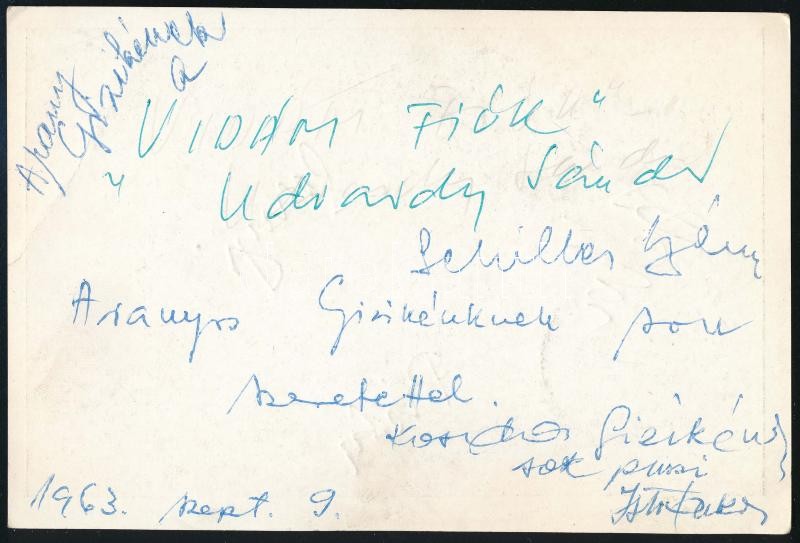 Arany
Gizikének
a
"VIDÁM FIÚK"
" Udvardy Sándor
Schiller
Aranyos Gizikénknek sok
szeretettel.
sok puszi
1963. szept. 9.